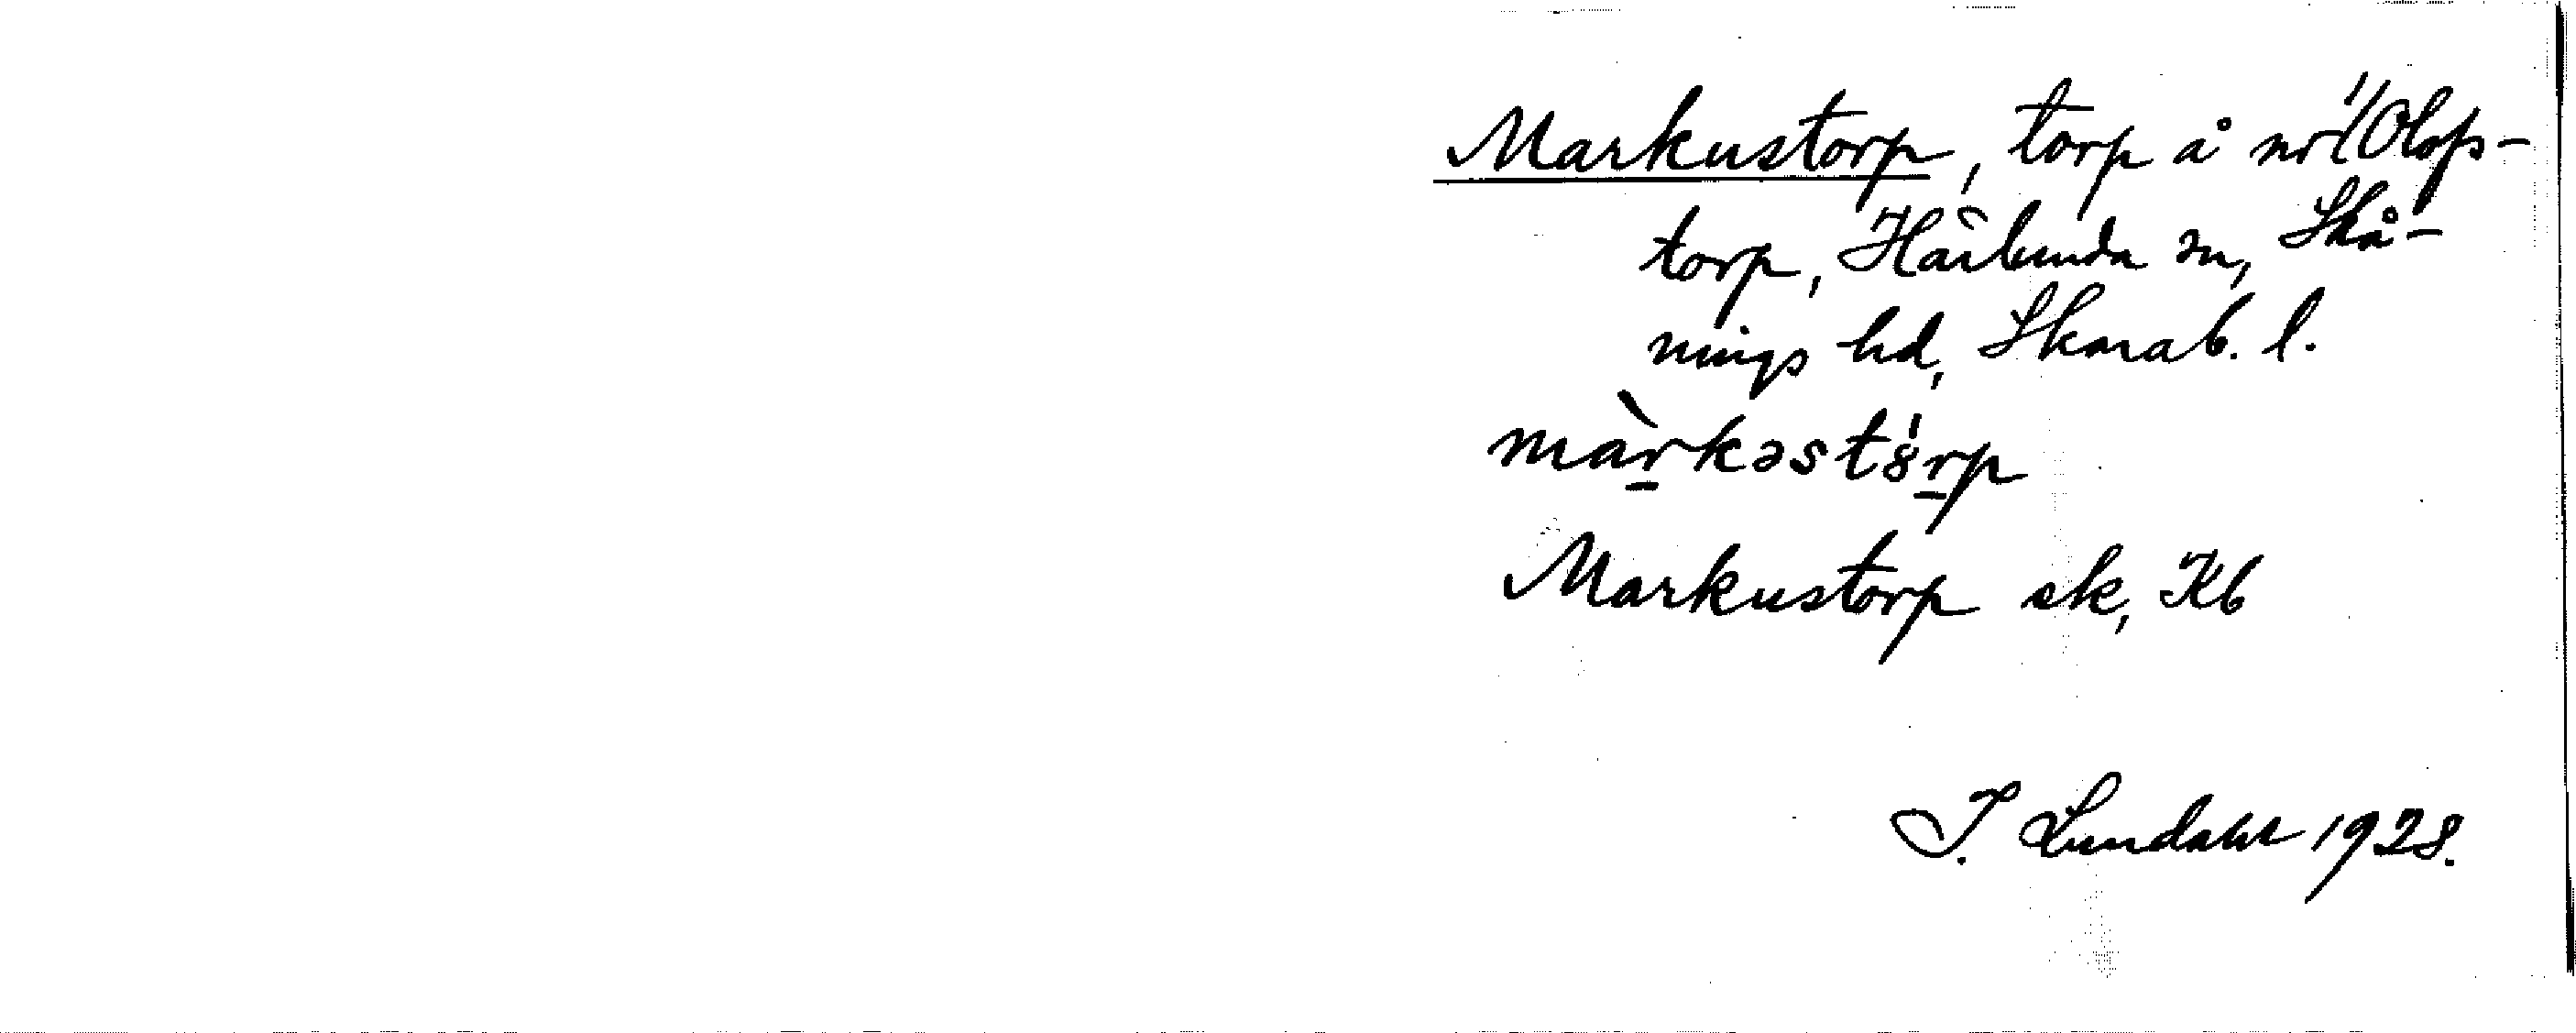 Markustorp, torp å nr 1 Olofs-
torp, Härlunda sn, Skå-
nings hd, Skarab. l.
màrkəst8̍rp
Markustorp sk, Kb
I. Lundahl 1928.